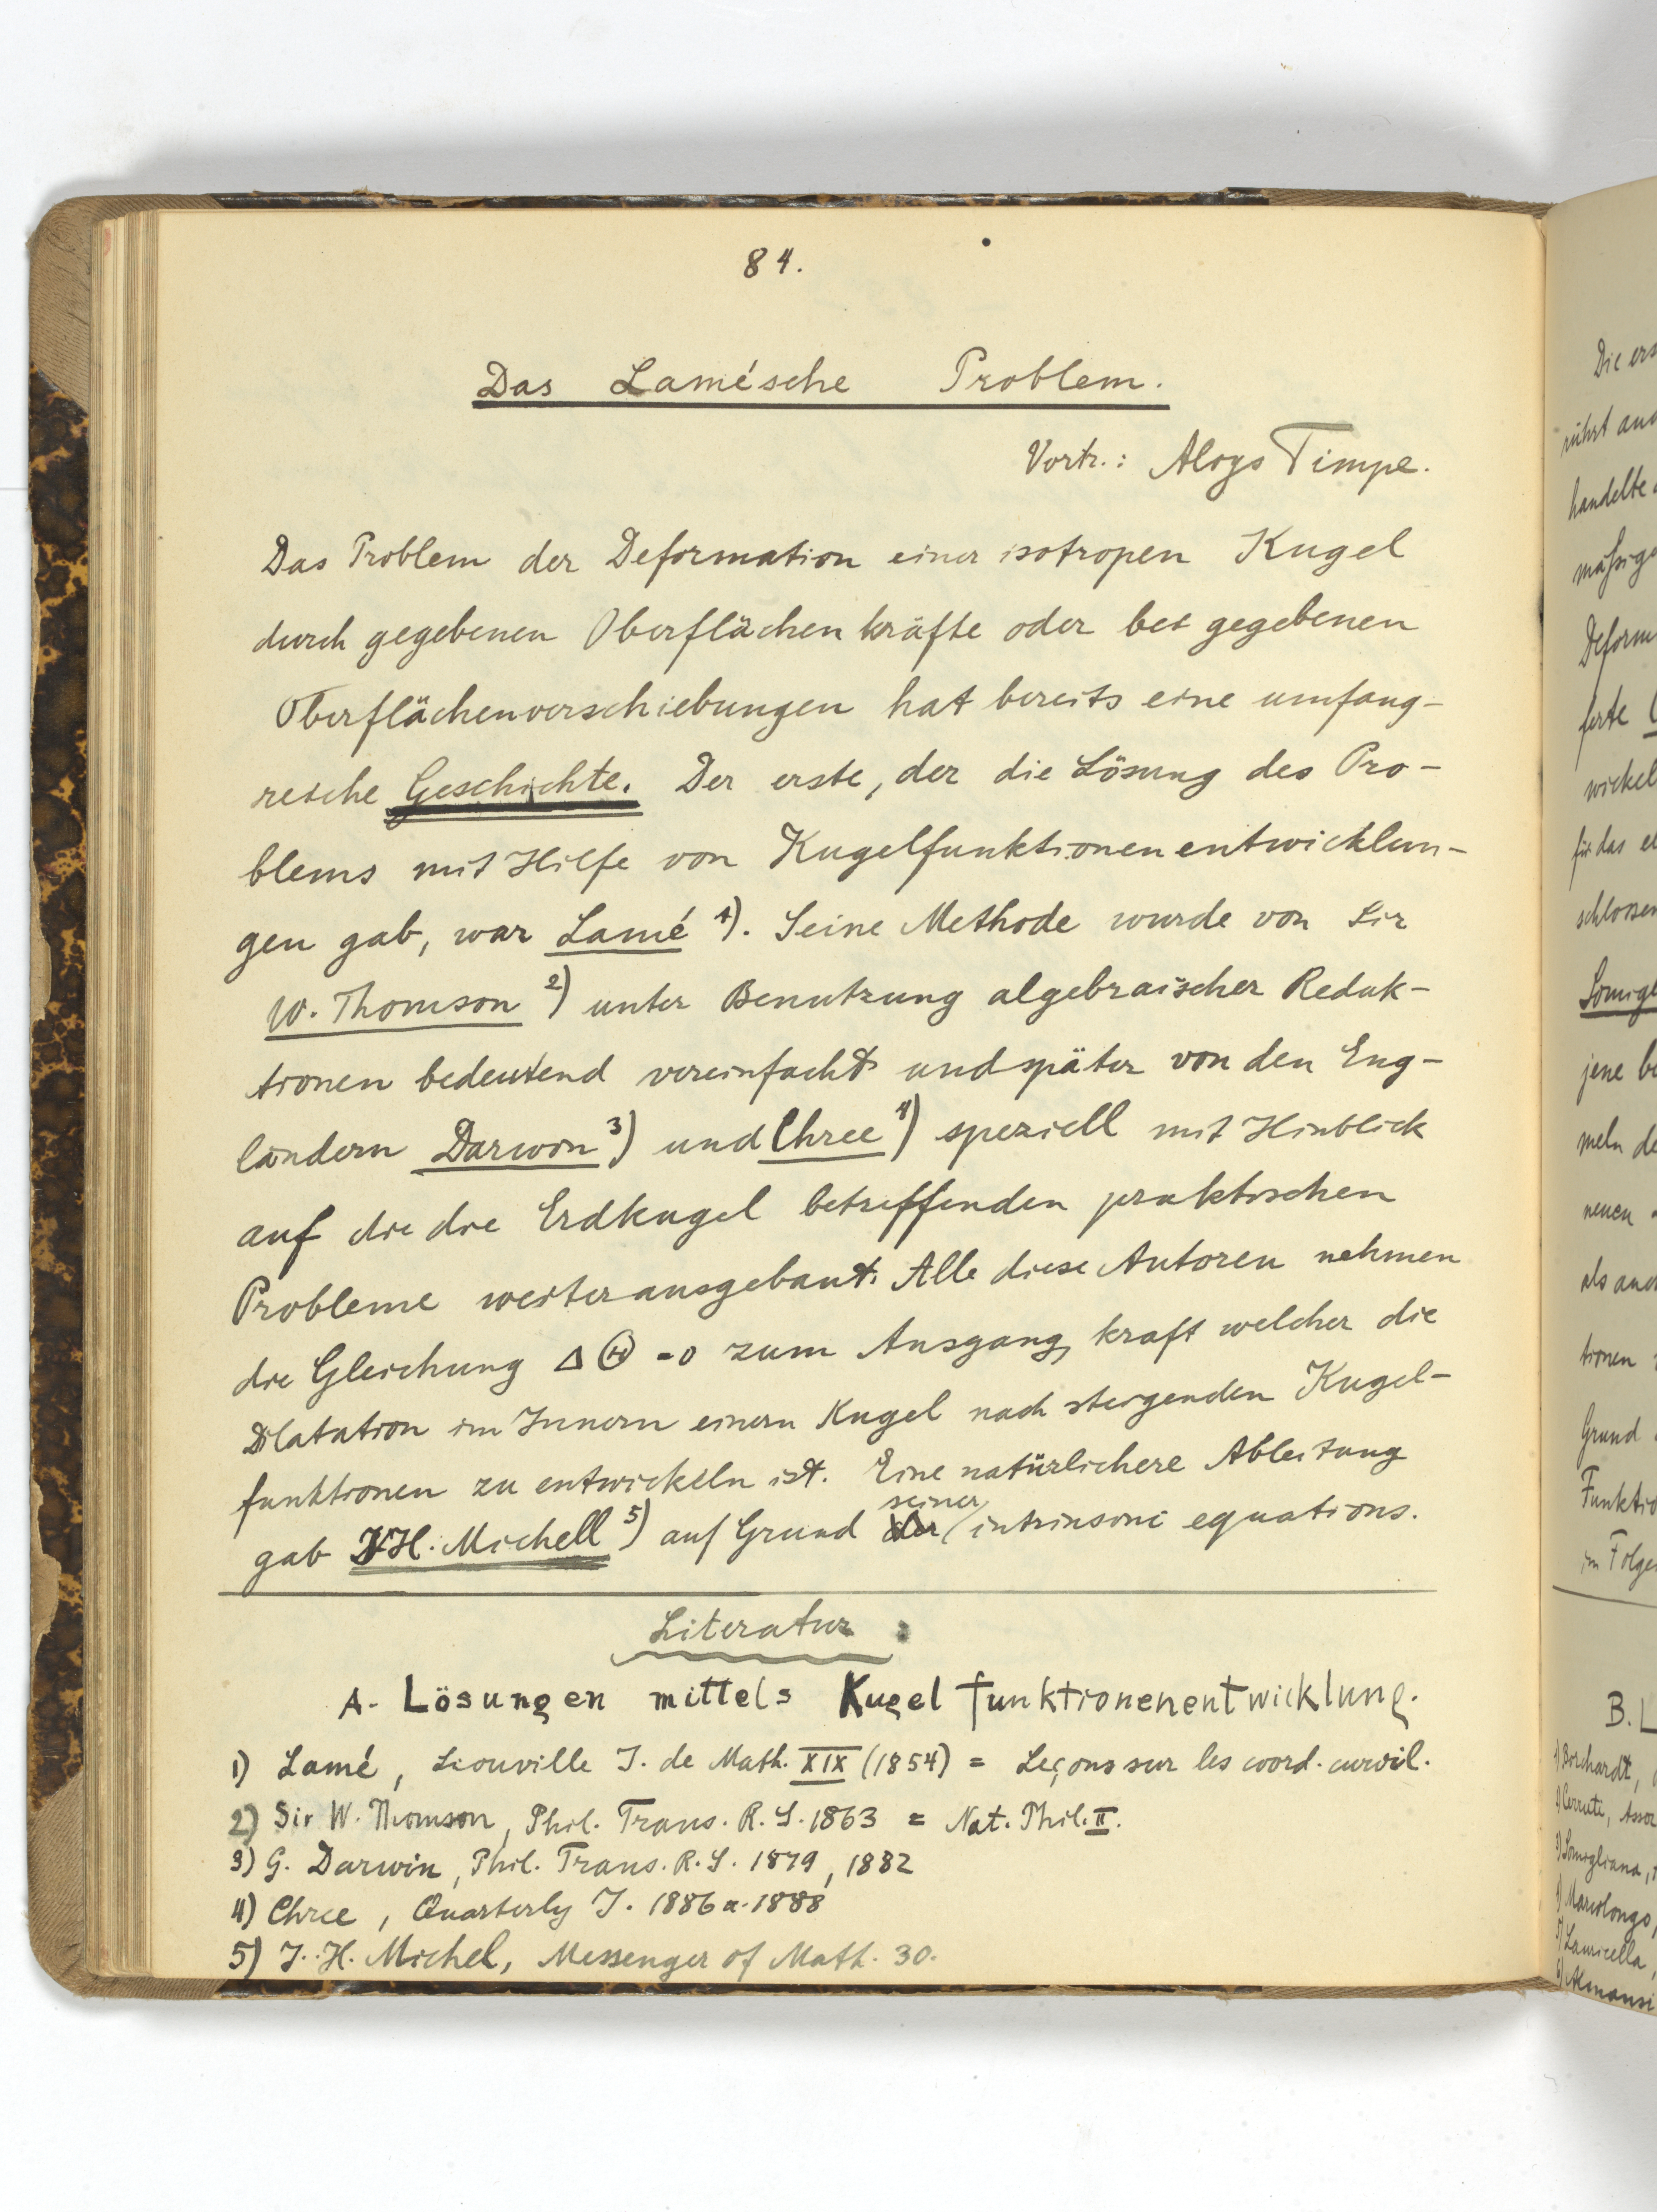 84.
Das Lamésche Problem.
Vortr.: Aloys Timpe.
Das Problem der Deformation einer isotropen Kugel
durch gegebenen Oberflächenkräfte oder bei gegebenen
Oberflächenverschiebungen hat bereits eine umfang-
reiche Geschichte. Der erste, der die Lösung des Pro-
blems mit Hilfe von Kugelfunktionenentwicklun-
gen gab, war Lamé 1). Seine Methode wurde von Sir
W. Thomson 2) unter Benutzung algebraischer Reduk-
tionen bedeutend vereinfacht und später von den Eng-
ländern Darwin 3) und Chree 4) speziell mit Hinblick
auf die die Erdkugel betreffenden praktischen
Probleme weiter ausgebaut. Alle diese Autoren nehmen
die Gleichung Δ Θ = 0 zum Ausgang, kraft welcher die
Dilatation im Innern einern Kugel nach steigenden Kugel-
funktionen zu entwickeln ist. Eine natürlichere Ableitung
gab J.H. Michell 5) auf Grund seiner intrinsoni equations.
Literatur:
A. Lösungen mittels Kugelfunktionenentwicklung.
1) Lamé, Liouville J. de Math. XIX (1854) = Leçons sur les coord. curvil.
2) Sir W. Thomson, Phil. Trans. R. S. 1863 = Nat. Phil. II.
3) G. Darwin, Phil. Trans. R. S. 1879, 1882
4) Chree, Quarterly J. 1886 u. 1888
5) J. H. Michel, Messenger of Math. 30.
Die
handelte
wickel
für das
jene
meln
neuen
als
tionen
Grund
im
B.
1) Borchardt,
2) Cerruti,
3) Somigliana,
4) Marcolongo,
5) Lauricella,
6) Almansi